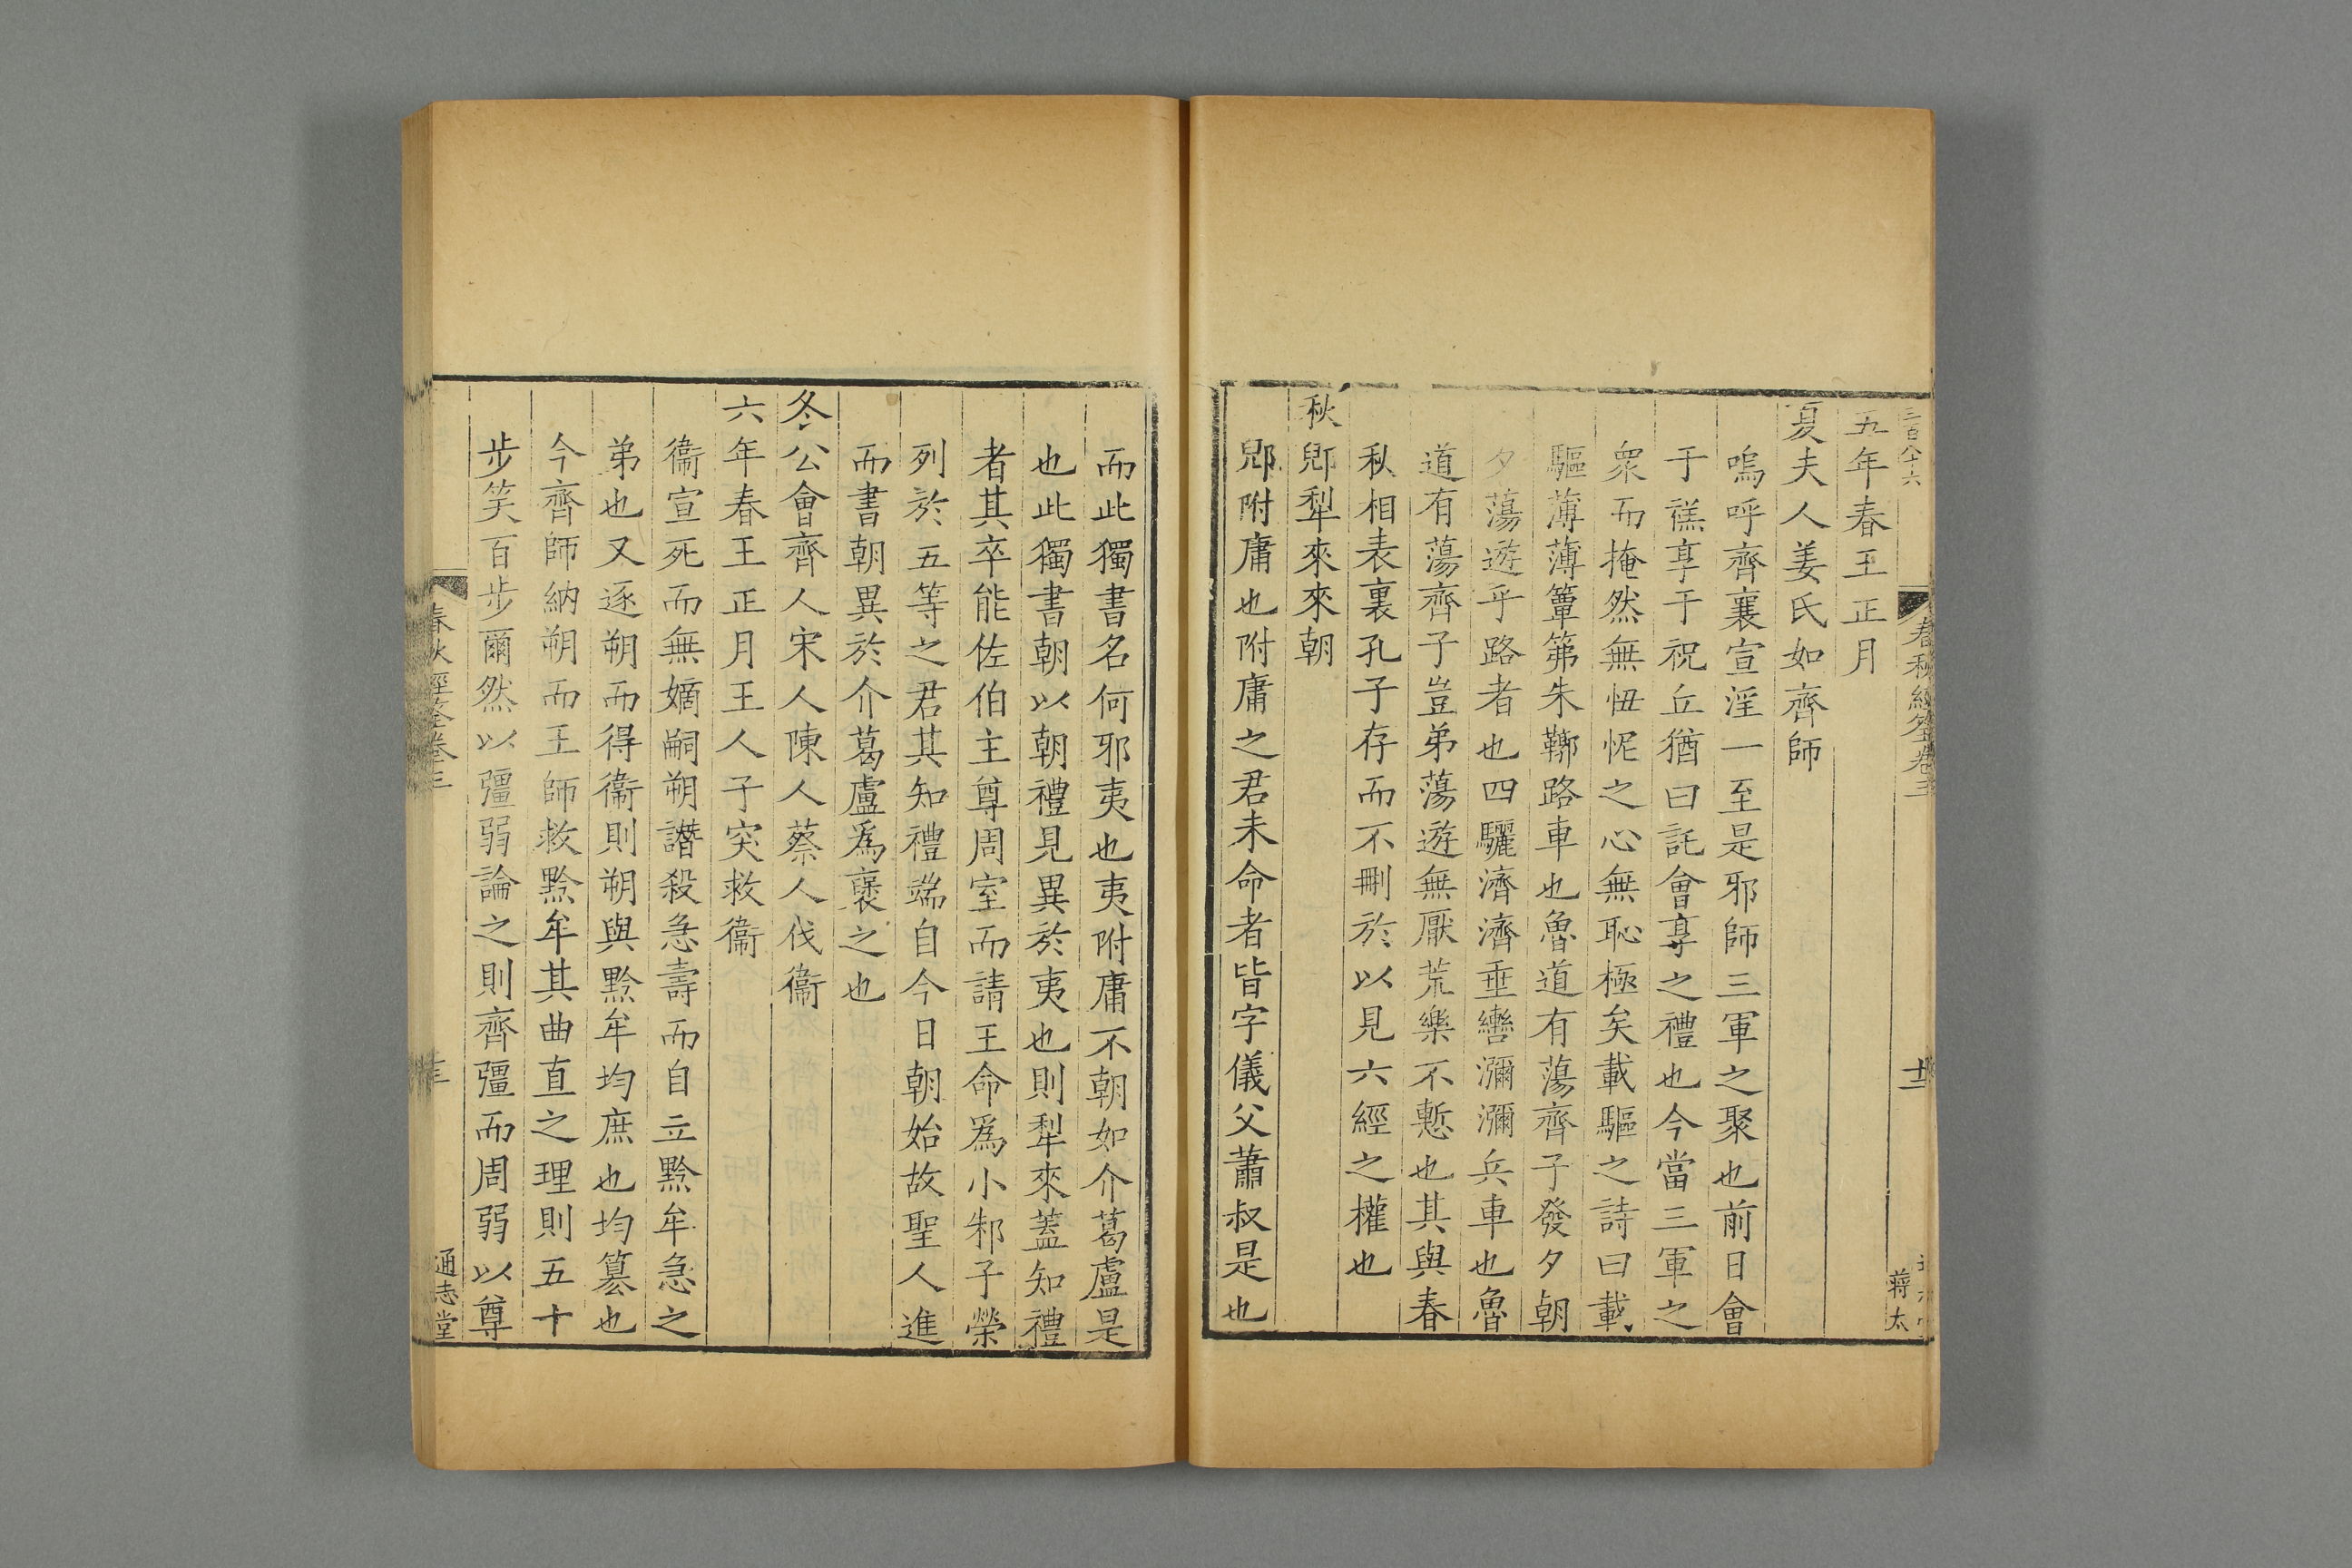 三百八十六
春秋經筌卷三
十二
蔣太
五年春王正月
夏夫人姜氏如齊師
嗚呼齊襄宣淫一至是邪師三軍之聚也前日會
于禚享于祝丘猶曰託會享之禮也今當三軍之
衆而掩然無忸怩之心無恥極矣載驅之詩曰載
驅薄薄簟笰朱鞹路車也魯道有蕩齊子發夕朝
夕蕩遊乎路者也四驪濟濟垂轡瀰瀰兵車也魯
道有蕩齊子豈弟蕩遊無厭荒樂不慙也其與春
秋相表裏孔子存而不刪於以見六經之權也
秋郳犁來來朝
郳附庸也附庸之君未命者皆字儀父蕭叔是也
而此獨書名何邪夷也夷附庸不朝如介葛盧是
也此獨書朝以朝禮見異於夷也則犁來蓋知禮
者其卒能佐伯主尊周室而請王命爲小邾子榮
列於五等之君其知禮端自今日朝始故聖人進
而書朝異於介葛盧爲襃之也
冬公會齊人宋人陳人蔡人伐衞
六年春王正月王人子突救衞
衞宣死而無嫡嗣朔譖殺急壽而自立黔牟急之
弟也又逐朔而得衞則朔與黔牟均庶也均簒也
今齊師納朔而王師救黔牟其曲直之理則五十
步笑百步爾然以彊弱論之則齊彊而周弱以尊
春秋經筌卷三
通志堂